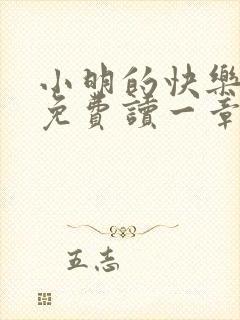 小明的快樂
免費讀一章
五志